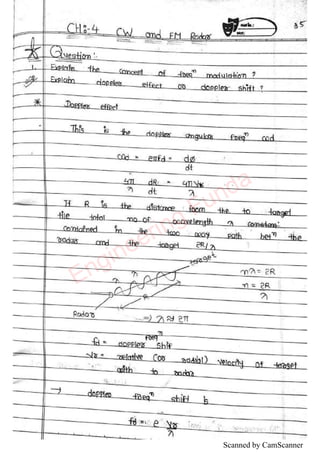 35
CH:4 CW and FM Radar
Question:
1. Explain the concept of freqn modulation ?
Explain doppler effect or doppler shift ?
* Doppler effect
This is the doppler angular freqn ωd
ωd = 2πfd = dØ
dt
4π dR = 4πVr
λ dt λ
If R is the distance from the to target
the total no of wavelength λ
contained in the two way path betn the
radar and the target 2R/λ
target
λ
λ
nλ = 2R
n = 2R
λ
R
Radar
=> λ 2π
fd = doppler freqn shift
Vr = relative (or radial) velocity of target
with to radar
→ doppler freqn shift is
fd = 2 Vr
λ
Engineering Funda
Scanned by CamScanner